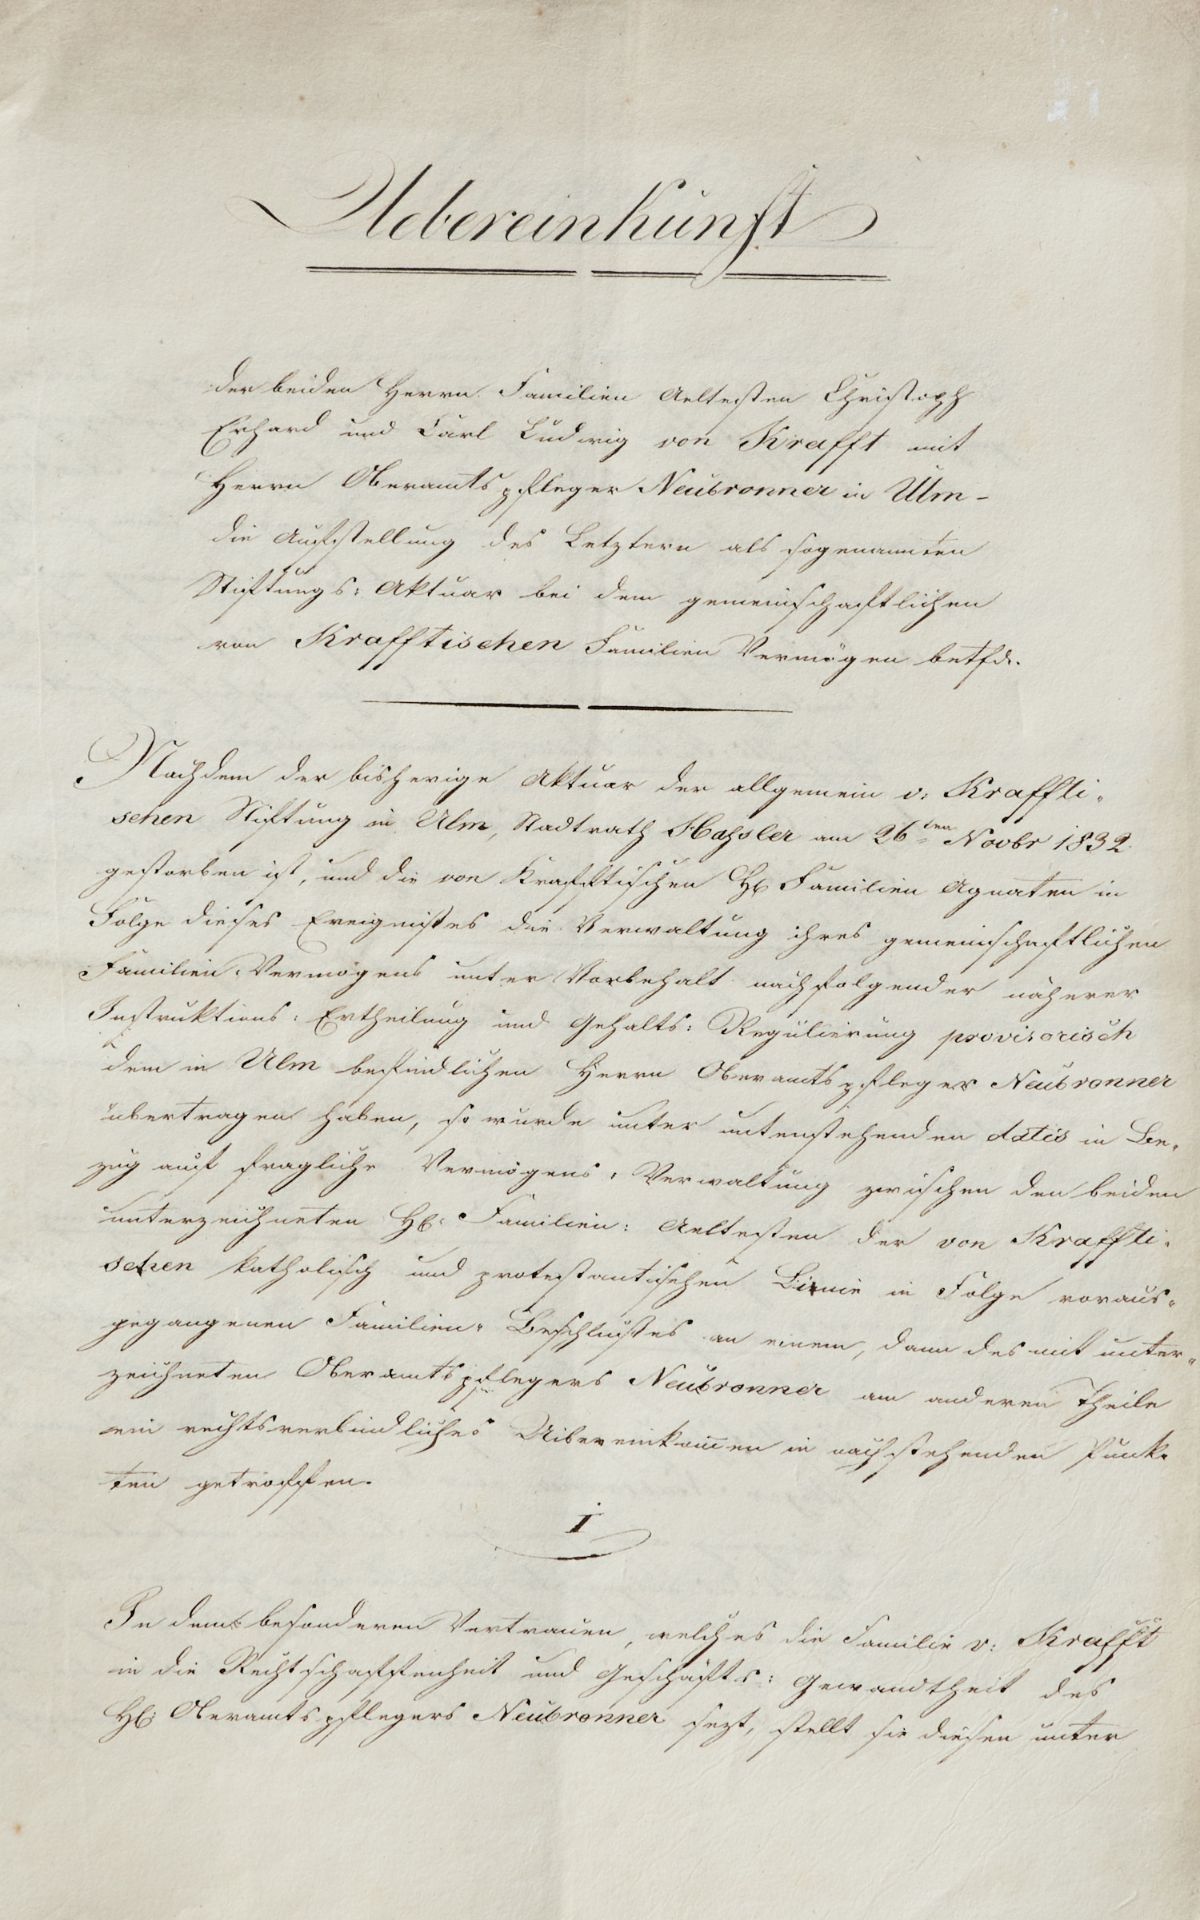 Uebereinkunft
der beiden Herrn Familien Aeltesten Christoph
Erhard und Carl Ludwig von Krafft mit
Herrn Oberamtspfleger Neubronner in Ulm –
die Aufstellung des Letztern als sogenannten
Stiftungs: Aktuar bei dem gemeinschaftlichen
von Krafftischen Familien Vermögen betfd.
Nachdem der bisherige Aktuar der allgemein v: Kraffti-
schen Stiftung in Ulm, Stadtrath Haßler am 26ten Novbr 1832.
gestorben ist, und die von Krafftischen H: Familien Agnaten in
Folge dieses Ereignißes die Verwaltung ihres gemeinschaftlichen
Familien Vermögens unter Vorbehalt nachfolgender näherer
Instruktions: Ertheilung und Gehalts: Regulierung provisorisch
dem in Ulm befindlichen Herrn Oberamtspfleger Neubronner
übertragen haben, so wurde unter untenstehenden datis in Be-
zug auf fragliche Vermögens: Verwaltung zwischen den beiden
unterzeichneten H: Familien: Aeltesten der von Kraffti-
schen katholisch und protestantischen Linie in Folge voraus-
gegangenen Familien: Beschlußes an einem, dann des mit unter-
zeichneten Oberamtspflegers Neubronner am anderen Theile
ein rechtsverbindliches Uibereinkom̄en in nachstehenden Punk-
ten getroffen.
I
In dem besonderen Vertrauen, welches die Familie v: Krafft
in die Rechtschaffenheit und Geschäfts: Gewandtheit des
H: Oberamtspflegers Neubronner sezt, stellt sie diesen unter